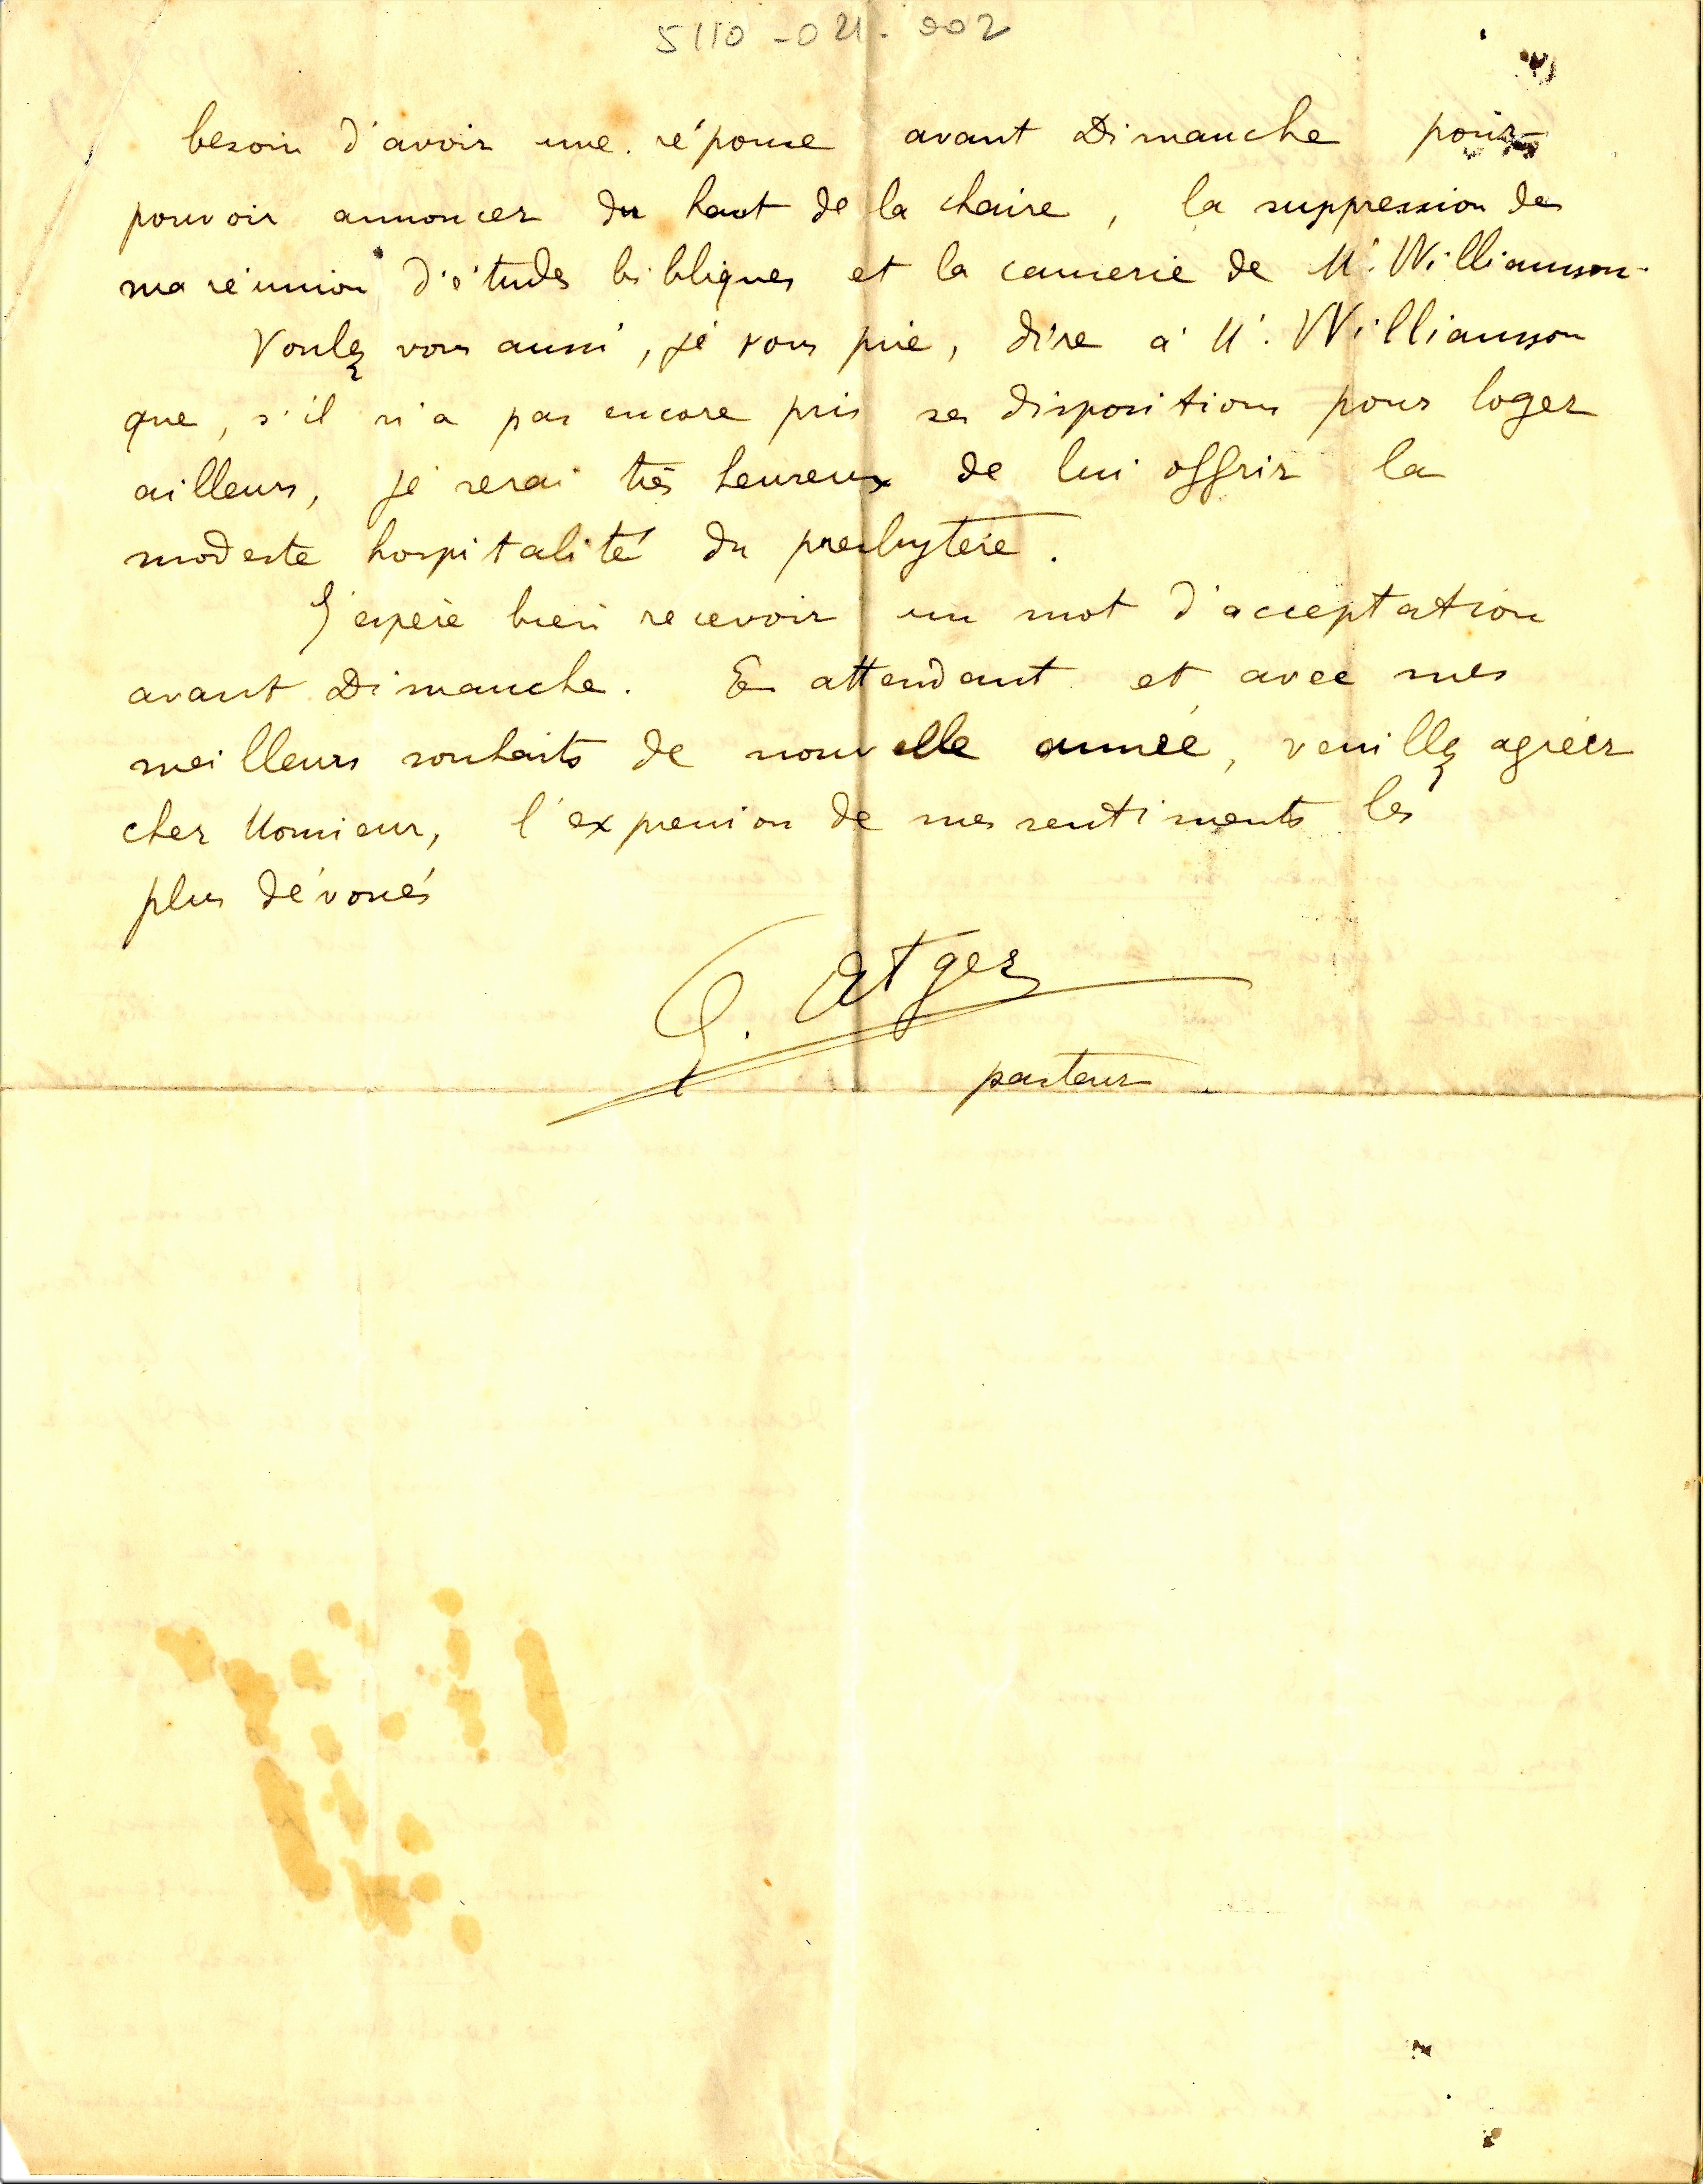 5110-021-002
besoin d'avoir une réponse avant Dimanche pour
pouvoir annoncer du haut de la chaire, la suppression de
ma réunion d'études bibliques et la causerie de Mr. Williamson.
Voulez vous aussi, je vous prie, dire à Mr. Williamson
que, s'il n'a pas encore pris ses dispositions pour loger
ailleurs, je serai très heureux de lui offrir la
modeste hospitalité du presbytère.
J'espère bien recevoir un mot d'acceptation
avant Dimanche. En attendant et avec mes
meilleurs souhaits de nouvelle année, veuillez agréer
cher Monsieur, l'expression de mes sentiments les
plus dévoués
Atger
pasteur